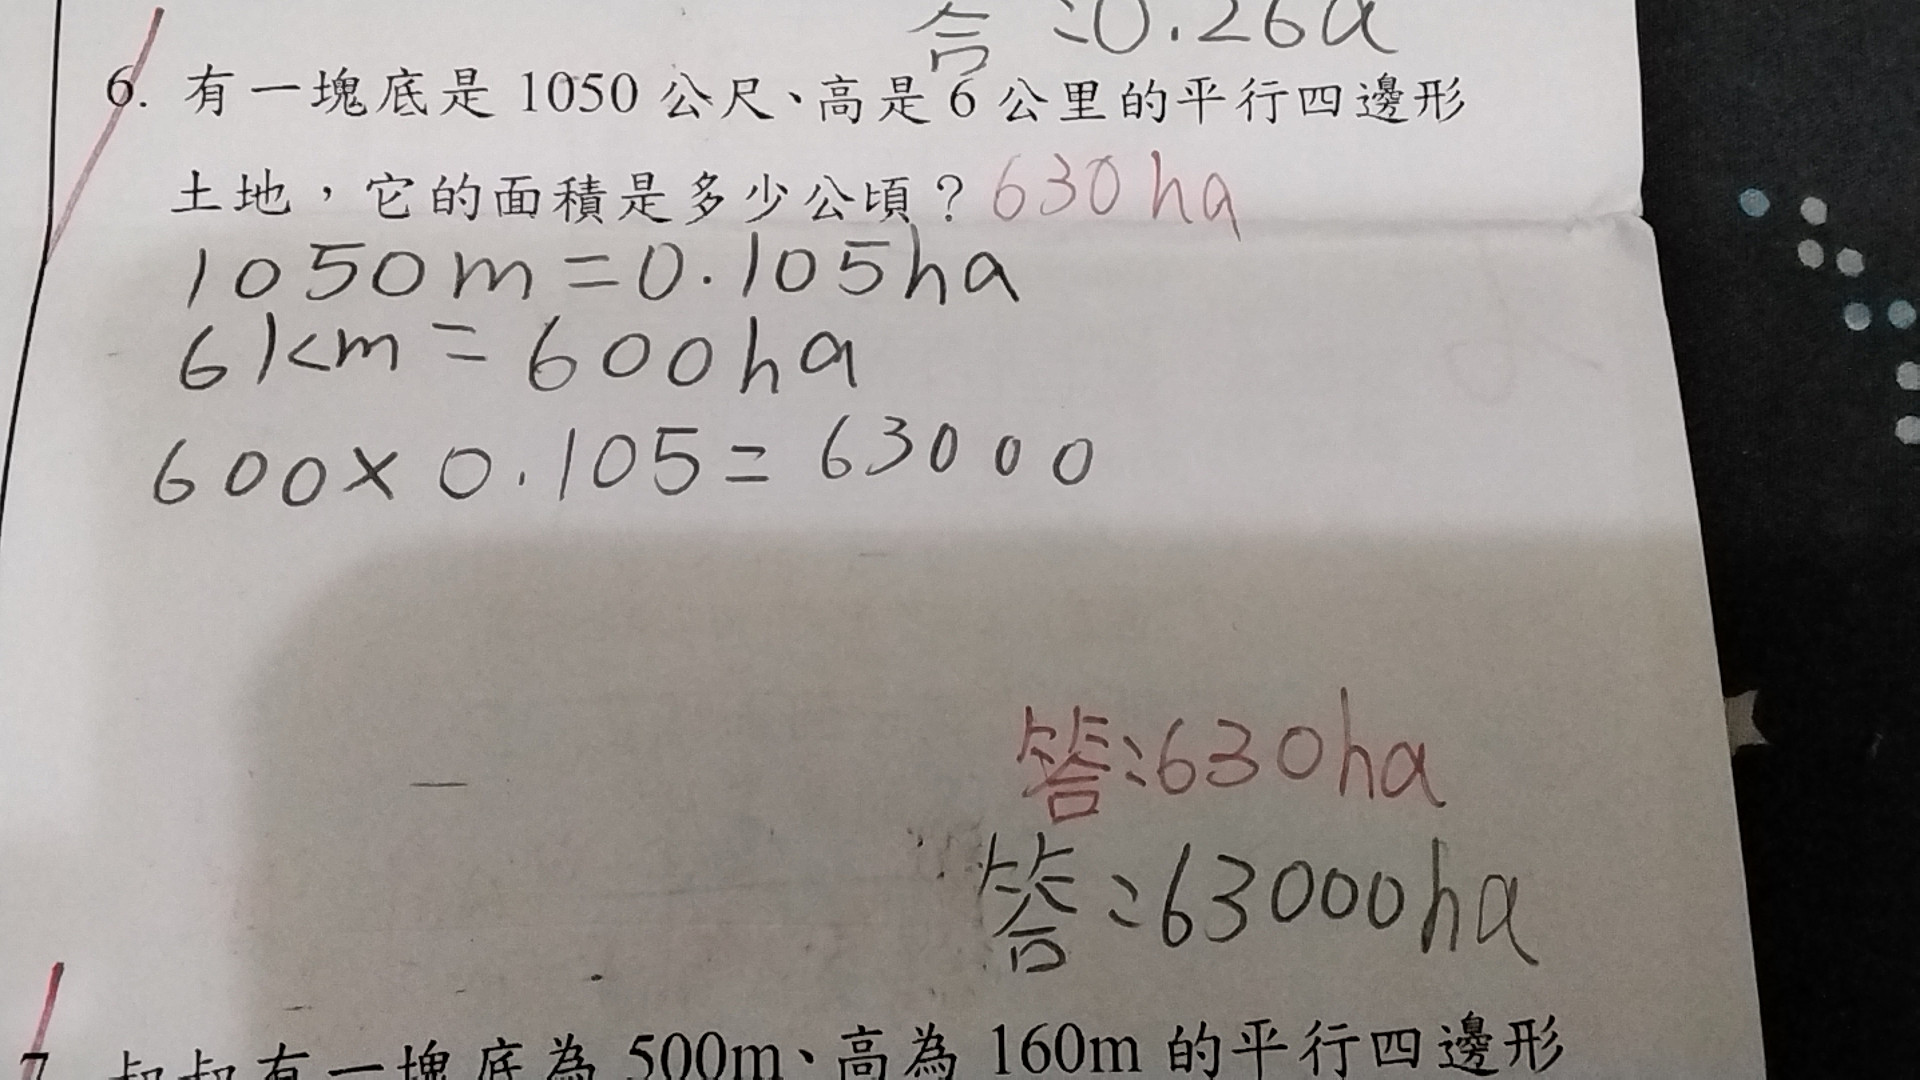 答:0.26a
6. 有一塊底是 1050 公尺、高是 6 公里的平行四邊形
土地，它的面積是多少公頃？630ha
1050m=0.105ha
6km=600ha
600×0.105=63000
答:630ha
答:63000ha
7. 叔叔有一塊底為 500m、高為 160m 的平行四邊形